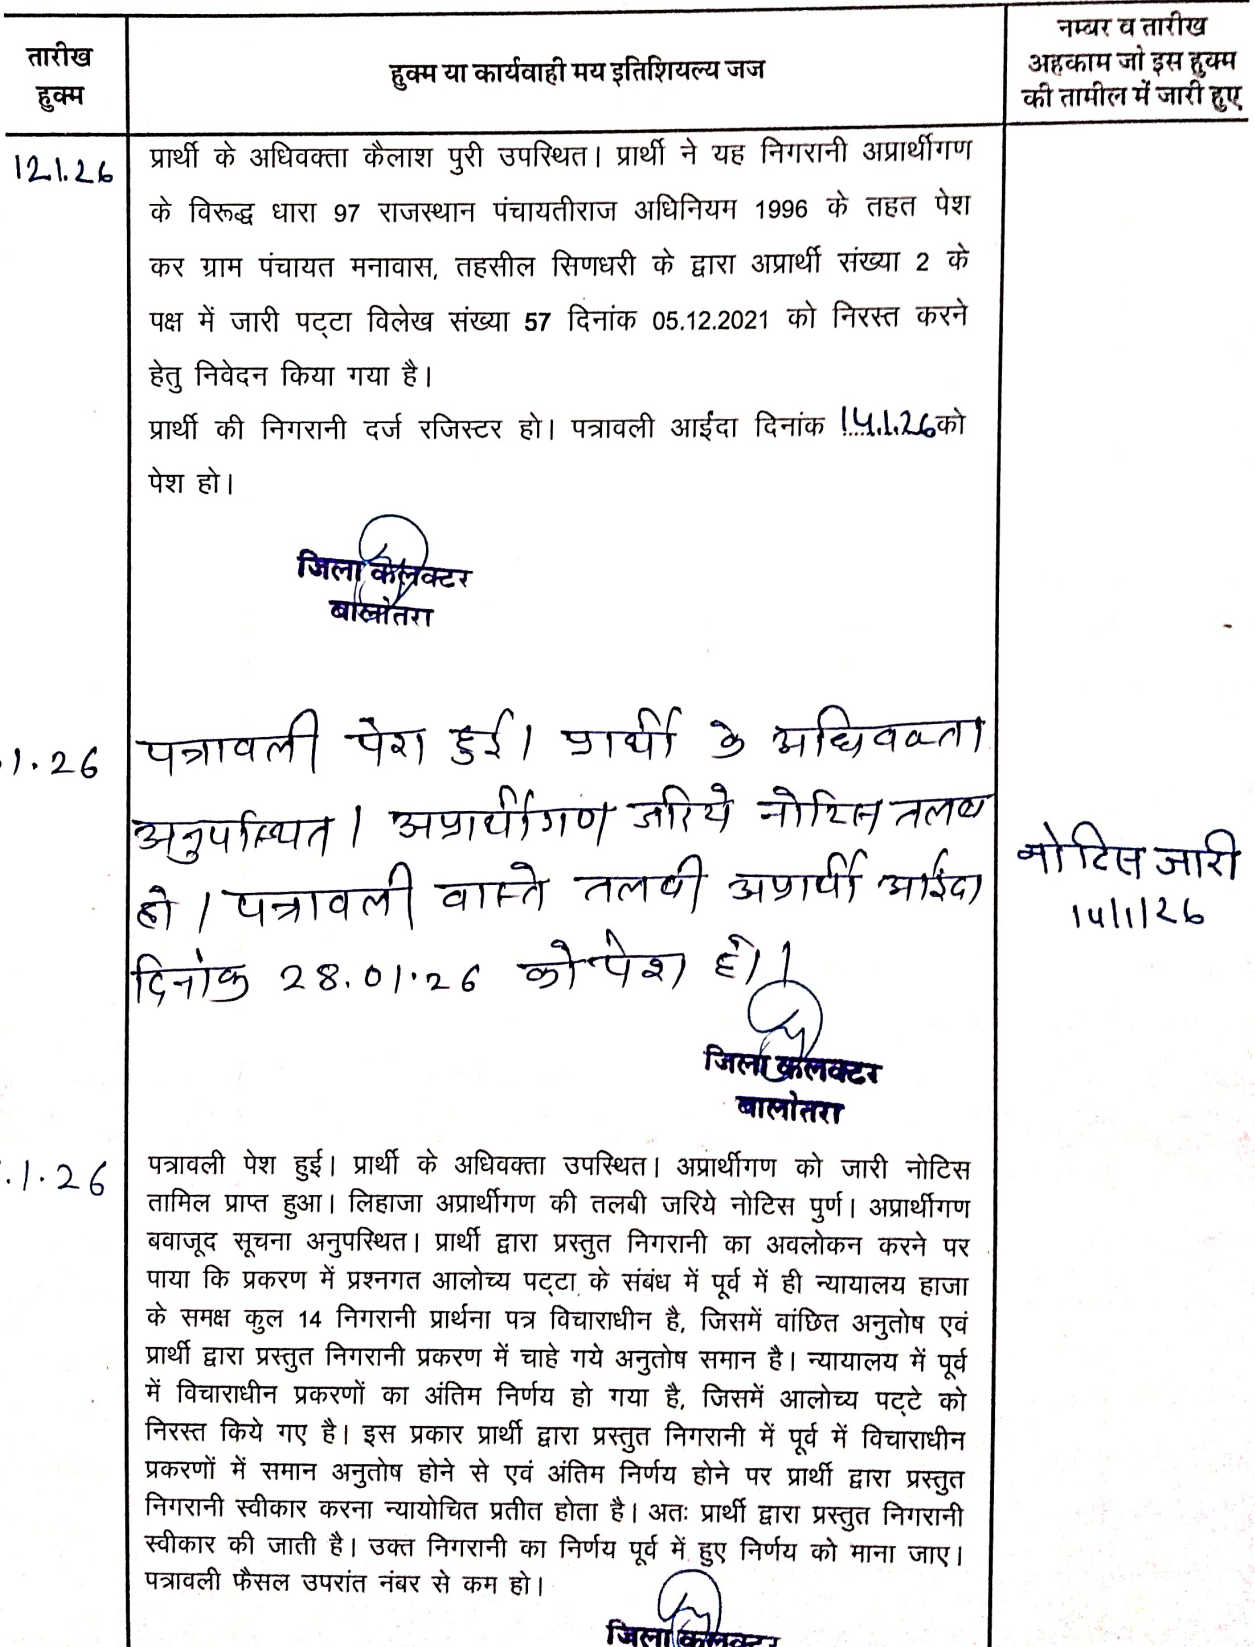 तारीख
हुक्म
हुक्म या कार्यवाही मय इतिशियल्य जज
नम्बर व तारीख
अहकाम जो इस हुक्म
की तामील में जारी हुए
12.1.26
प्रार्थी के अधिवक्ता कैलाश पुरी उपस्थित। प्रार्थी ने यह निगरानी अप्रार्थीगण
के विरूद्ध धारा 97 राजस्थान पंचायतीराज अधिनियम 1996 के तहत पेश
कर ग्राम पंचायत मनावास, तहसील सिणधरी के द्वारा अप्रार्थी संख्या 2 के
पक्ष में जारी पट्टा विलेख संख्या 57 दिनांक 05.12.2021 को निरस्त करने
हेतु निवेदन किया गया है।
प्रार्थी की निगरानी दर्ज रजिस्टर हो। पत्रावली आईदा दिनांक 14.1.26 को
पेश हो।
जिला कलक्टर
बालोतरा
1.26
पत्रावली पेश हुई। प्रार्थी के अधिवक्ता
अनुपस्थित। अप्रार्थीगण जरिये नोटिस तलब
हो। पत्रावली वास्ते तलबी अप्रार्थी आईदा
दिनांक 28.01.26 को पेश हो।
नोटिस जारी
14/1/26
जिला कलक्टर
बालोतरा
.1.26
पत्रावली पेश हुई। प्रार्थी के अधिवक्ता उपस्थित। अप्रार्थीगण को जारी नोटिस
तामिल प्राप्त हुआ। लिहाजा अप्रार्थीगण की तलबी जरिये नोटिस पुर्ण। अप्रार्थीगण
बवाजूद सूचना अनुपस्थित। प्रार्थी द्वारा प्रस्तुत निगरानी का अवलोकन करने पर
पाया कि प्रकरण में प्रश्नगत आलोच्य पट्टा के संबंध में पूर्व में ही न्यायालय हाजा
के समक्ष कुल 14 निगरानी प्रार्थना पत्र विचाराधीन है, जिसमें वांछित अनुतोष एवं
प्रार्थी द्वारा प्रस्तुत निगरानी प्रकरण में चाहे गये अनुतोष समान है। न्यायालय में पूर्व
में विचाराधीन प्रकरणों का अंतिम निर्णय हो गया है, जिसमें आलोच्य पट्टे को
निरस्त किये गए है। इस प्रकार प्रार्थी द्वारा प्रस्तुत निगरानी में पूर्व में विचाराधीन
प्रकरणों में समान अनुतोष होने से एवं अंतिम निर्णय होने पर प्रार्थी द्वारा प्रस्तुत
निगरानी स्वीकार करना न्यायोचित प्रतीत होता है। अतः प्रार्थी द्वारा प्रस्तुत निगरानी
स्वीकार की जाती है। उक्त निगरानी का निर्णय पूर्व में हुए निर्णय को माना जाए।
पत्रावली फैसल उपरांत नंबर से कम हो।
जिला कलक्टर